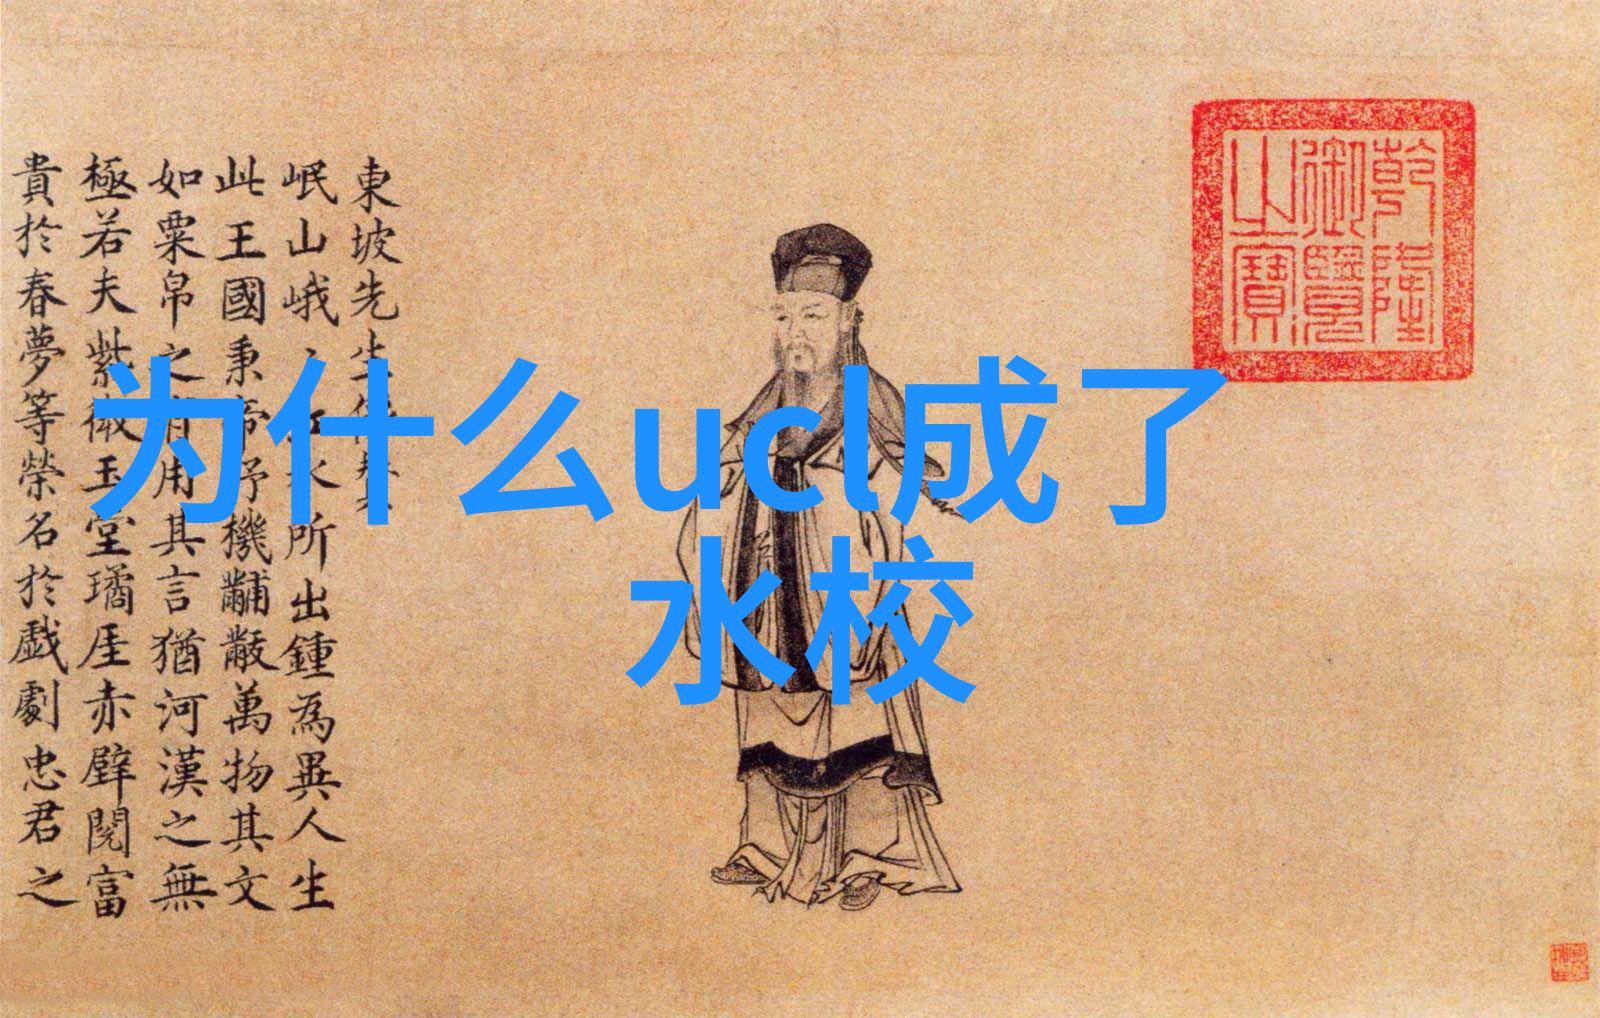 東坡先生
岷山峨〻江水所出鍾為異人生
此王國秉帝杼機黼黻萬物其文
如粟帛之有用其言猶河漢之無
極若夫紫微玉堂璚厓赤壁閱富
貴於春夢等榮名於戲劇忠君之
乾隆
御覽
之寶
为什么ucl成了
水校